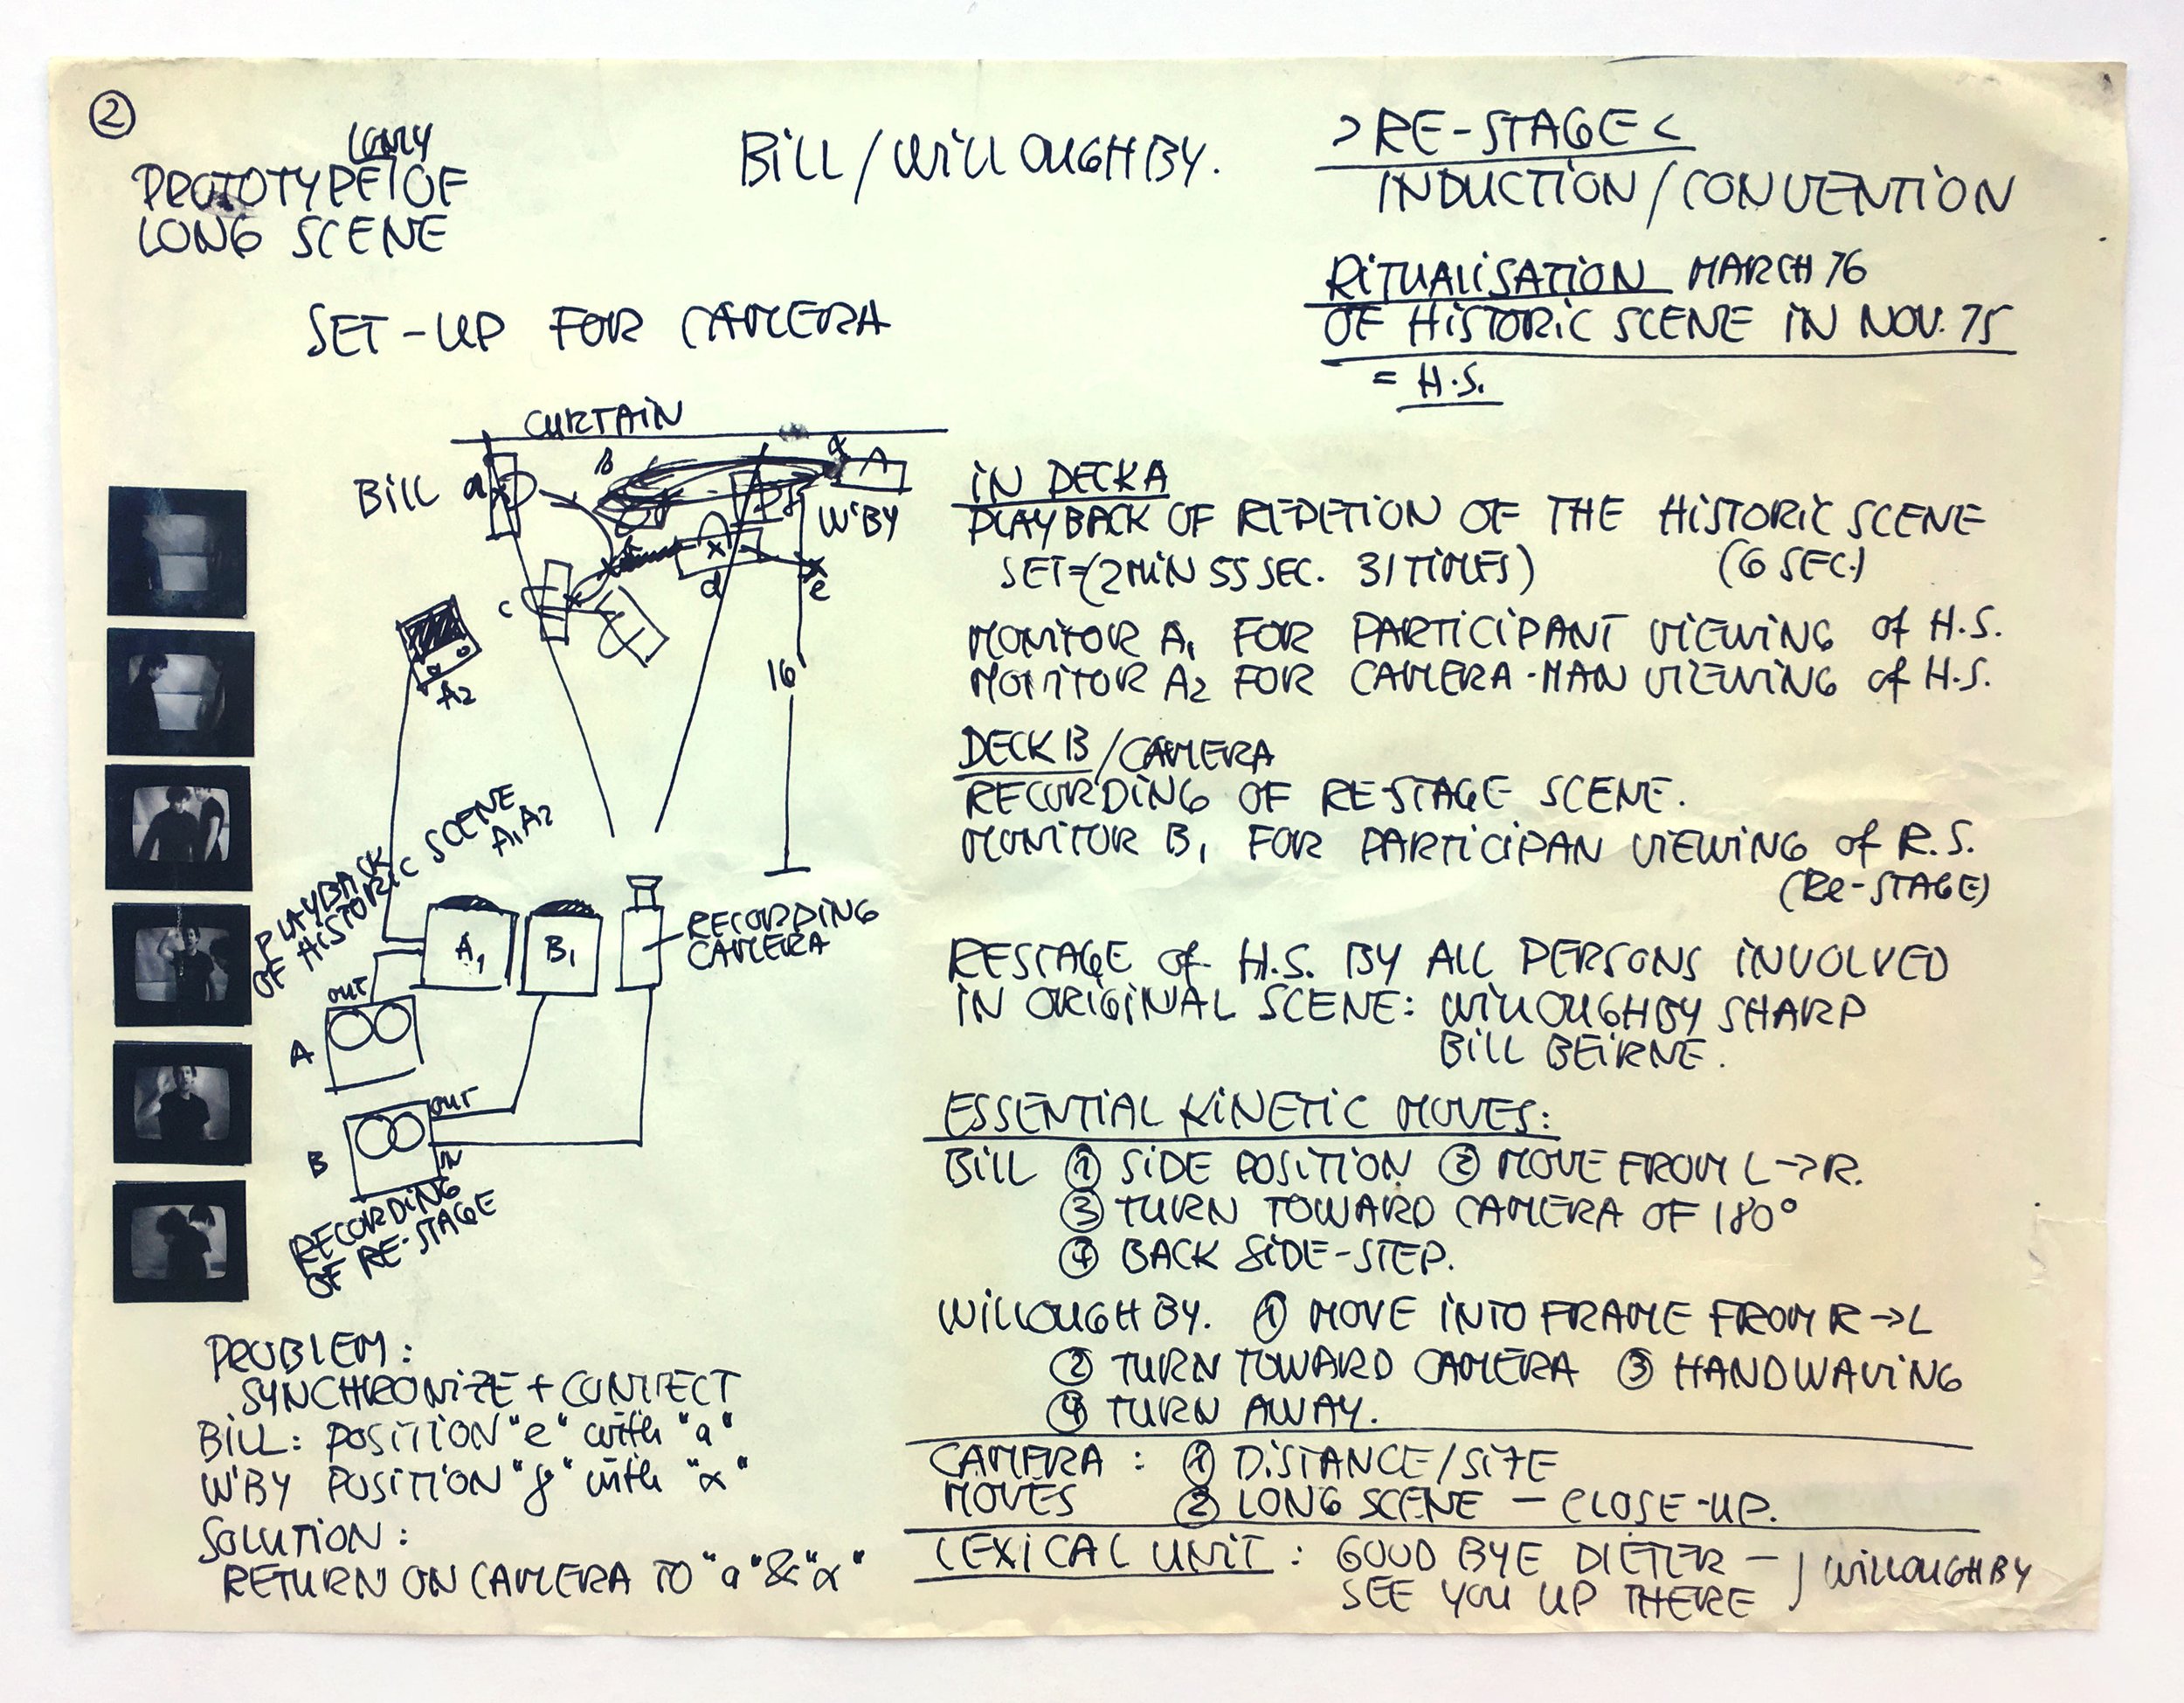 2
(ONLY
PROTOTYPE OF
LONG SCENE
BILL/WILLOUGHBY.
>RE-STAGE<
INDUCTION/CONVENTION
RITUALISATION MARCH 76
OF HISTORIC SCENE IN NOV. 75
= H.S.
SET-UP FOR CAMERA
CURTAIN
BILL a
b
α
A
W'BY
c
d
e
A2
16'
PLAYBACK
OF HISTORIC SCENE
A1 A2
A1
B1
RECORDING
CAMERA
OUT
A
OUT
B
IN
RECORDING
OF RE-STAGE
PROBLEM:
SYNCHRONIZE + CONNECT
BILL: POSITION "e" with "a"
W'BY POSITION "γ" with "α"
SOLUTION:
RETURN ON CAMERA TO "a" & "α"
IN DECK A
PLAYBACK OF REPETION OF THE HISTORIC SCENE
SET=(2MIN 55 SEC. 31 TIMES) (6 SEC.)
MONITOR A1 FOR PARTICIPANT VIEWING of H.S.
MONITOR A2 FOR CAMERA-MAN VIEWING of H.S.
DECK B/CAMERA
RECORDING OF RE-STAGE SCENE.
MONITOR B1 FOR PARTICIPAN VIEWING of R.S.
(Re-STAGE)
RESTAGE of H.S. BY ALL PERSONS INVOLVED
IN ORIGINAL SCENE: WILLOUGHBY SHARP
BILL BEIRNE.
ESSENTIAL KINETIC MOVES:
BILL ① SIDE POSITION ② MOVE FROM L→R.
③ TURN TOWARD CAMERA OF 180°
④ BACK SIDE-STEP.
WILLOUGHBY. ① MOVE INTO FRAME FROM R→L
② TURN TOWARD CAMERA ③ HANDWAVING
④ TURN AWAY.
CAMERA: ① DISTANCE/SIZE
MOVES ② LONG SCENE — CLOSE-UP.
LEXICAL UNIT: GOOD BYE DIETER —
SEE YOU UP THERE } WILLOUGHBY